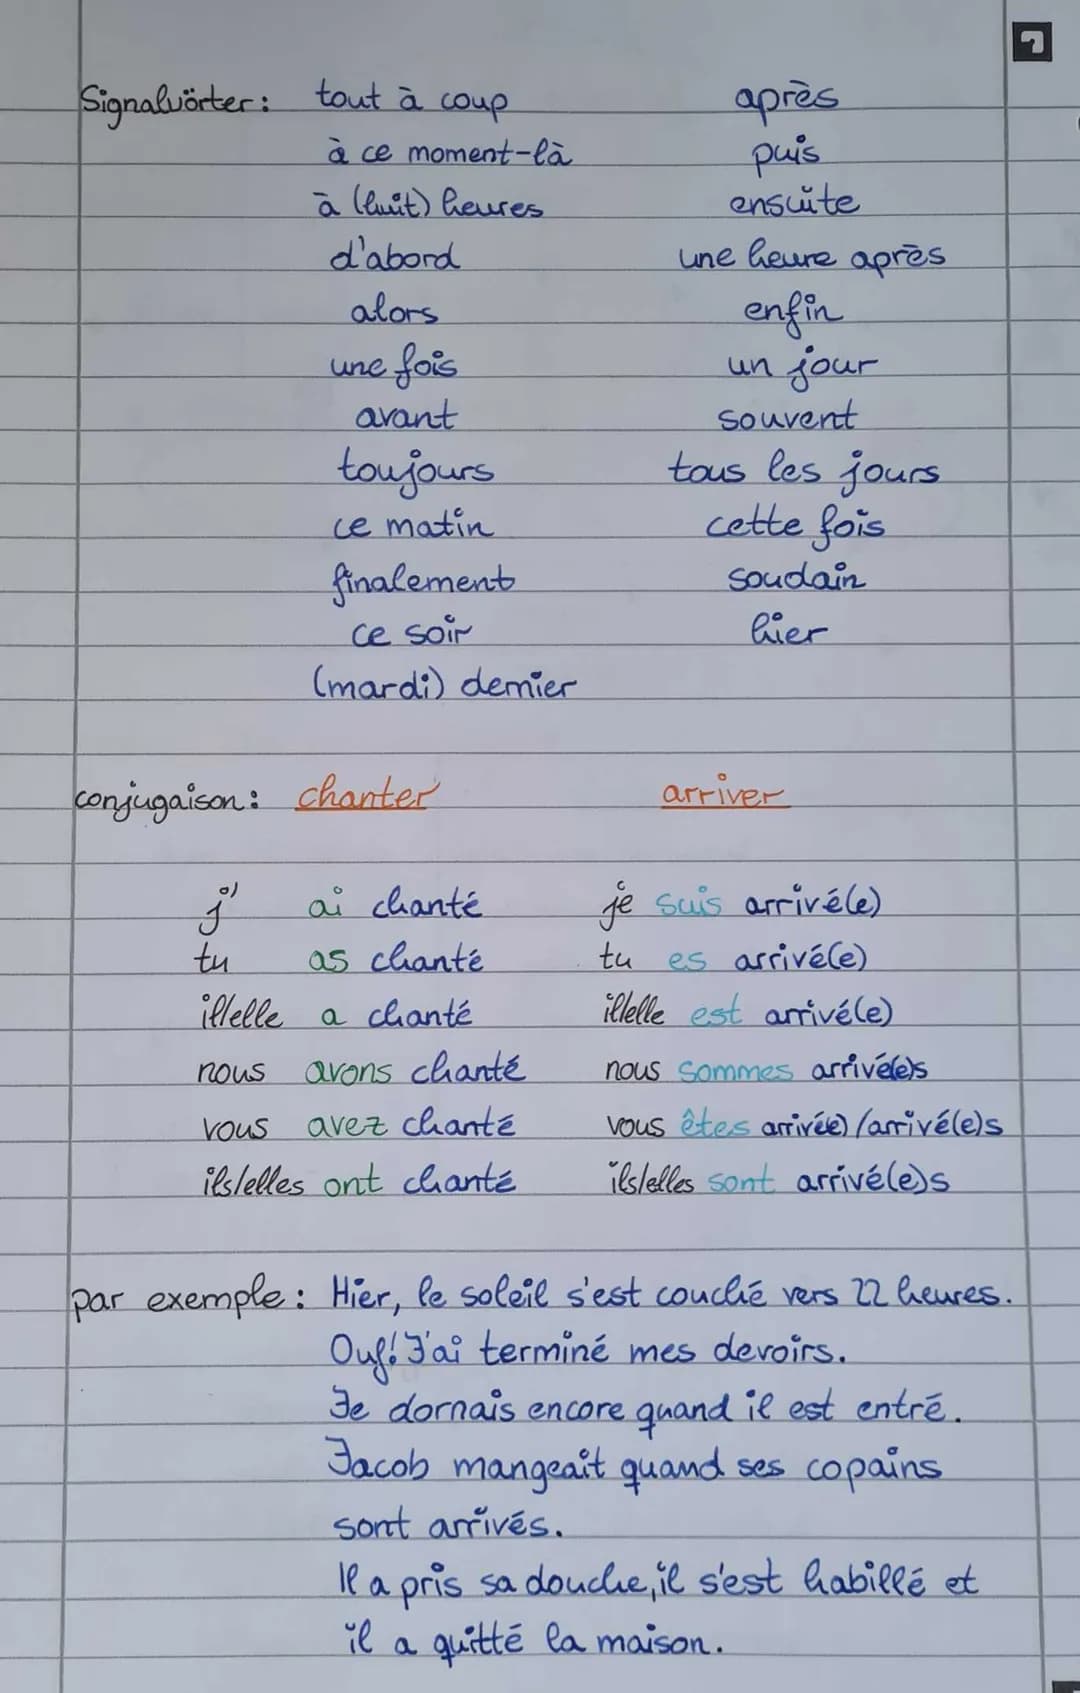 Signalwörter: tout à coup après
à ce moment-là puis
à (huit) heures ensuite
d'abord une heure après
alors enfin
une fois un jour
avant souvent
toujours tous les jours
ce matin cette fois
finalement soudain
ce soir hier
(mardi) dernier
conjugaison: chanter arriver
j' ai chanté je suis arrivé(e)
tu as chanté tu es arrivé(e)
il/elle a chanté il/elle est arrivé(e)
nous avons chanté nous sommes arrivé(e)s
vous avez chanté vous êtes arrivé(e)/arrivé(e)s
ils/elles ont chanté ils/elles sont arrivé(e)s
par exemple: Hier, le soleil s'est couché vers 22 heures.
Ouf! J'ai terminé mes devoirs.
Je dornais encore quand il est entré.
Jacob mangeait quand ses copains
sont arrivés.
Il a pris sa douche, il s'est habillé et
il a quitté la maison.